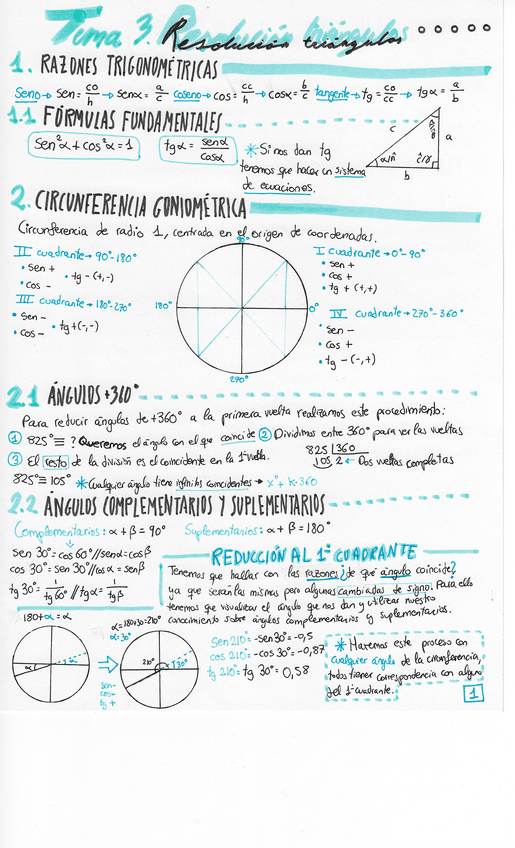 Tema 3. Resolución triángulos
1. RAZONES TRIGONOMÉTRICAS
Seno → sen = co/h → senα = a/c coseno → cos = cc/h → cosα = b/c tangente → tg = co/cc → tgα = a/b
1.1 FÓRMULAS FUNDAMENTALES
sen²α + cos²α = 1
tgα = senα/cosα
* Si nos dan tg
tenemos que hacer un sistema
de ecuaciones.
c
a
b
2. CIRCUNFERENCIA GONIOMÉTRICA
Circunferencia de radio 1, centrada en el origen de coordenadas.
II cuadrante → 90°-180°
• sen +
• tg - (+,-)
• cos -
III cuadrante → 180°-270°
• sen -
• tg + (-,-)
• cos -
90°
180°
0°
270°
I cuadrante → 0°-90°
• sen +
• cos +
• tg + (+,+)
IV cuadrante → 270°-360°
• sen -
• cos +
• tg - (-,+)
2.1 ÁNGULOS +360°
Para reducir ángulos de +360° a la primera vuelta realizamos este procedimiento:
① 825° ≡ ? Queremos el ángulo con el que coincide ② Dividimos entre 360° para ver las vueltas
825 |360
105 2 ← Dos vueltas completas
③ El resto de la división es el coincidente en la 1ª vuelta.
825° ≡ 105° * Cualquier ángulo tiene infinitos coincidentes → x° + k·360
2.2 ÁNGULOS COMPLEMENTARIOS Y SUPLEMENTARIOS
Complementarios: α + β = 90° Suplementarios: α + β = 180°
sen 30° = cos 60° // senα = cosβ
cos 30° = sen 30° // cosα = senβ
tg 30° = 1/tg 60° // tgα = 1/tgβ
REDUCCIÓN AL 1º CUADRANTE
Tenemos que hallar con las razones ¿de qué ángulo coincide?
ya que serán las mismas pero algunas cambiadas de signo. Para ello
tenemos que visualizar el ángulo que nos dan y utilizar nuestro
conocimiento sobre ángulos complementarios y suplementarios.
180+α = α
α
α
sen-
cos-
tg +
α = 180+30 = 210°
α = 30°
210°
30°
Sen 210° = -sen 30° = -0,5
cos 210° = -cos 30° = -0,87
tg 210° = tg 30° = 0,58
* Haremos este proceso con
cualquier ángulo de la circunferencia,
todos tienen correspondencia con alguno
del 1º cuadrante.
1